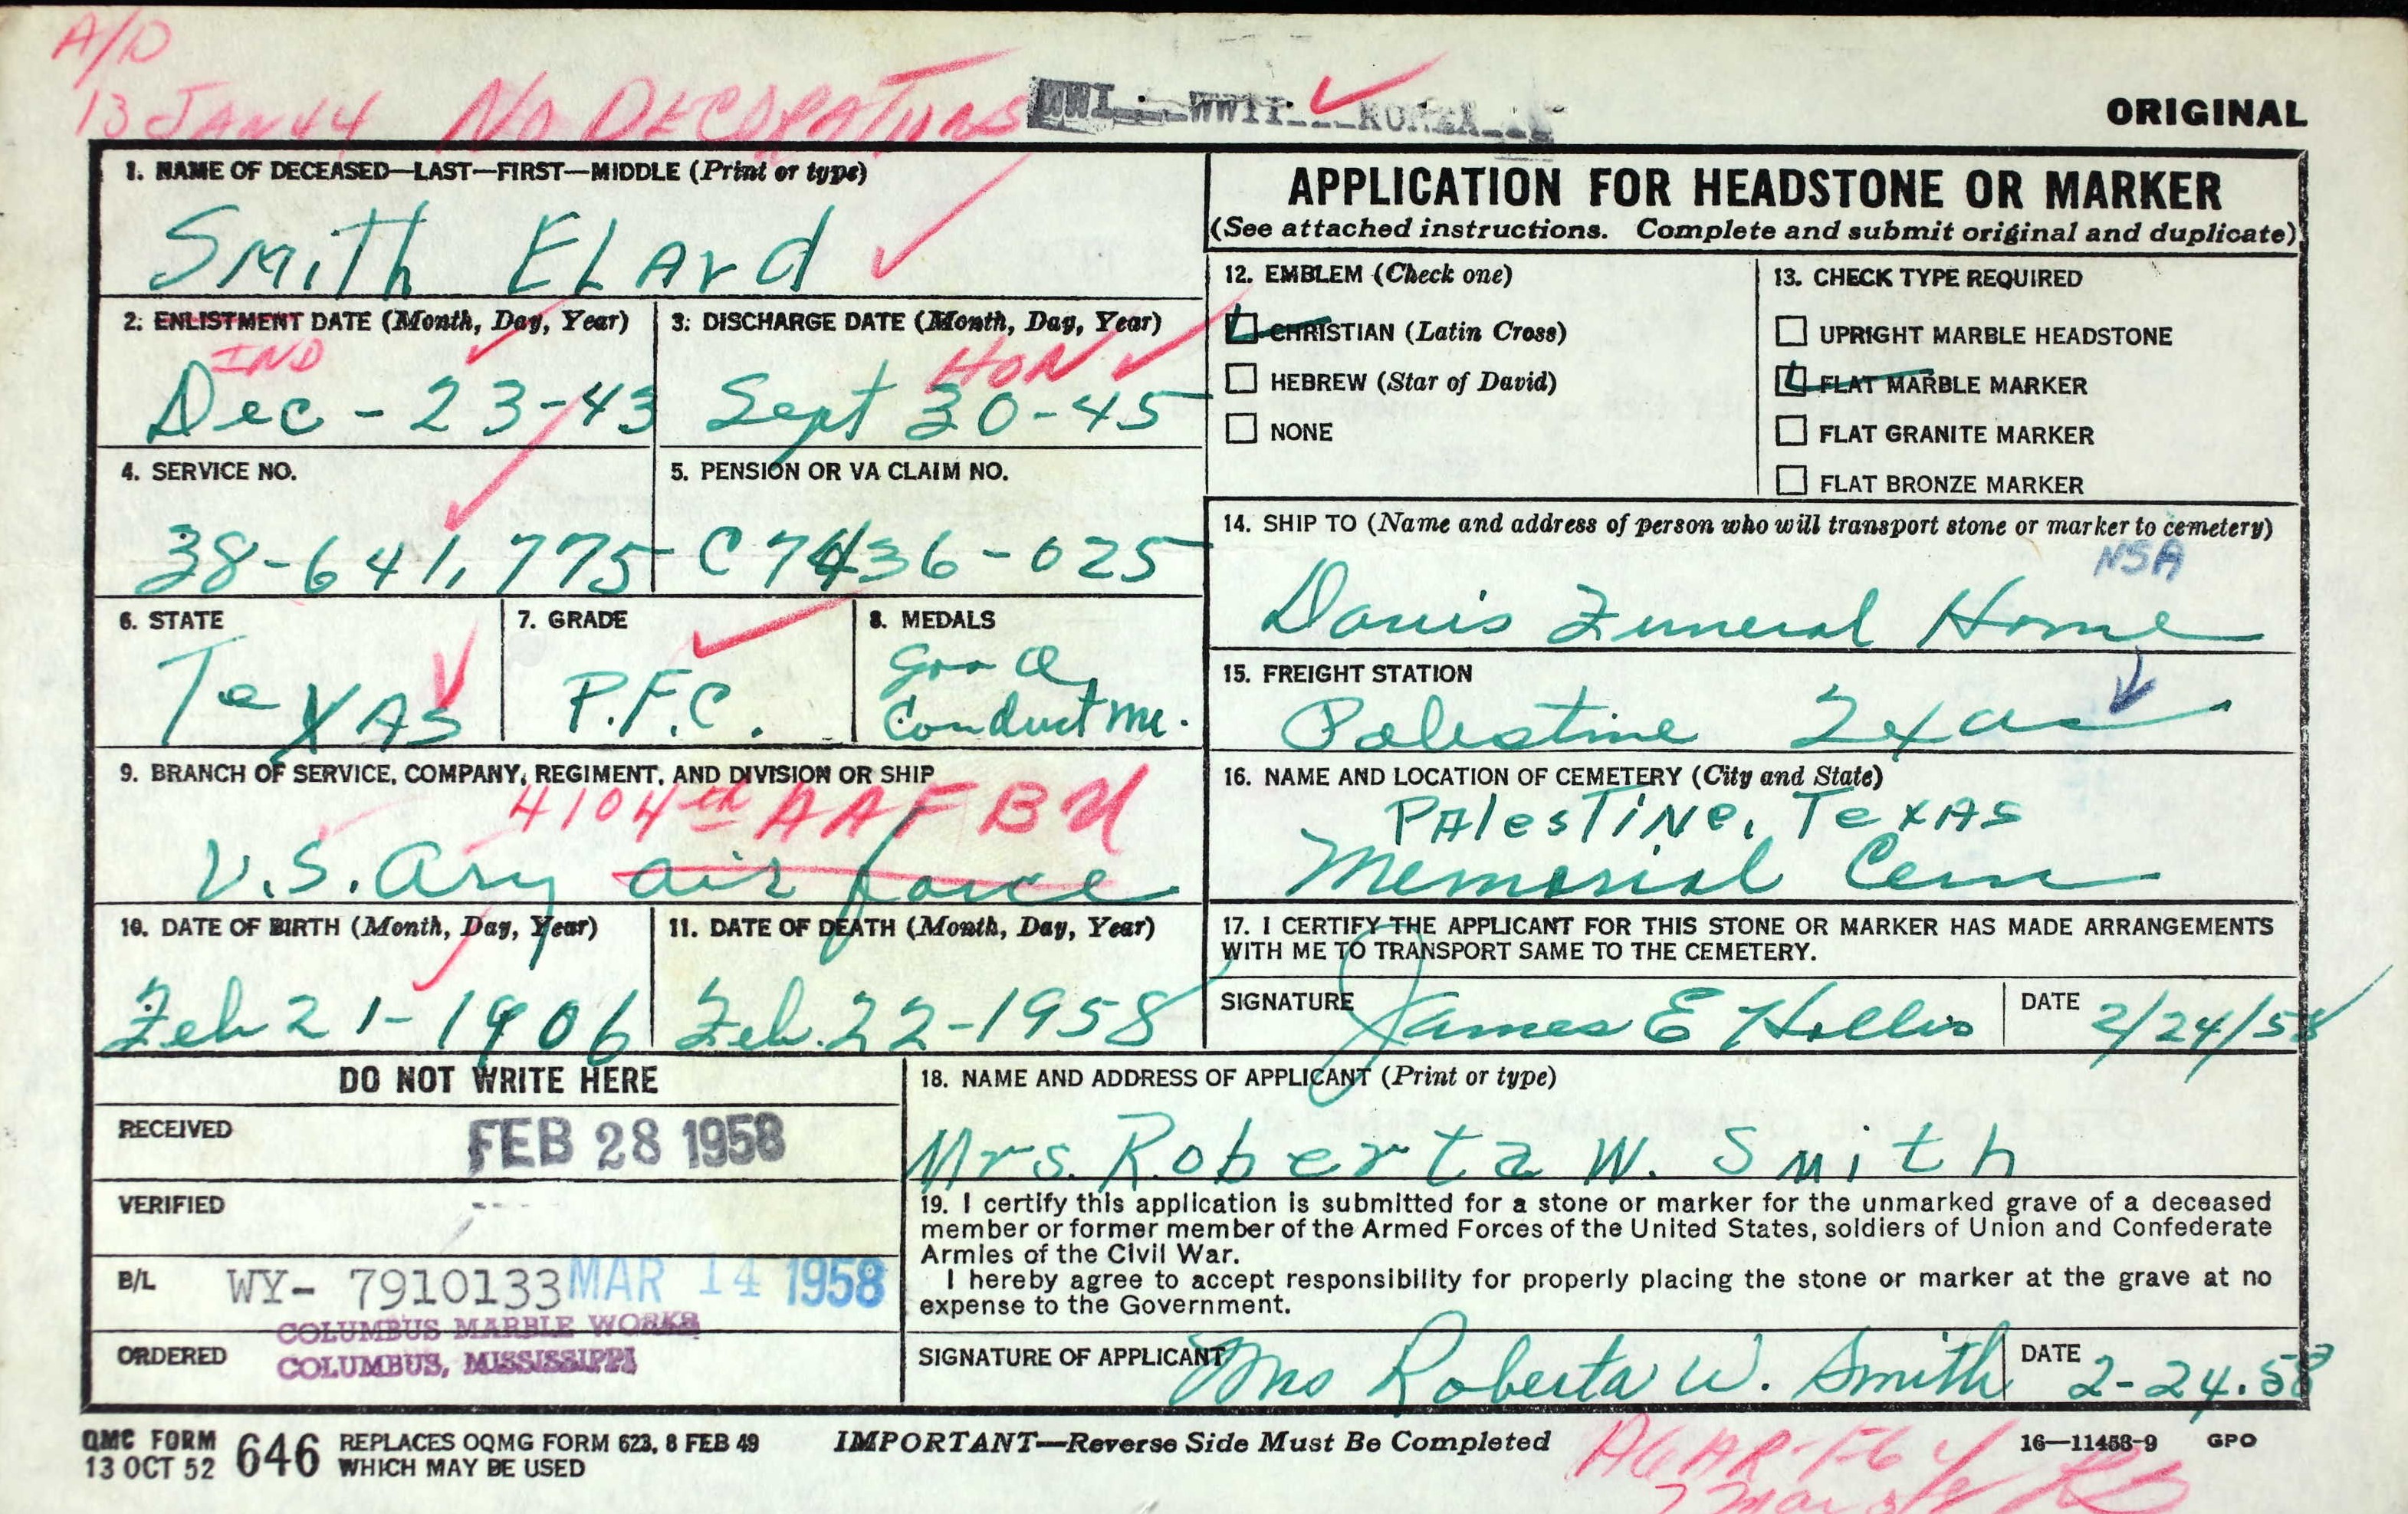 A/D
13 JAN 44 NO DECORATIONS WWI WWII KOREA
ORIGINAL
1. NAME OF DECEASED—LAST—FIRST—MIDDLE (Print or type)
Smith ELArd
2. ENLISTMENT DATE (Month, Day, Year)
IND
Dec - 23-43
3. DISCHARGE DATE (Month, Day, Year)
HON
Sept 30-45
4. SERVICE NO.
38-641,775
5. PENSION OR VA CLAIM NO.
C7436-025
6. STATE
TexAs
7. GRADE
P.F.C.
8. MEDALS
Good
Conduct Me.
9. BRANCH OF SERVICE, COMPANY, REGIMENT, AND DIVISION OR SHIP
4104th AAF BU
U.S. Ary air force
10. DATE OF BIRTH (Month, Day, Year)
Feb 21-1906
11. DATE OF DEATH (Month, Day, Year)
Feb. 22-1958
APPLICATION FOR HEADSTONE OR MARKER
(See attached instructions. Complete and submit original and duplicate)
12. EMBLEM (Check one)
CHRISTIAN (Latin Cross)
HEBREW (Star of David)
NONE
13. CHECK TYPE REQUIRED
UPRIGHT MARBLE HEADSTONE
FLAT MARBLE MARKER
FLAT GRANITE MARKER
FLAT BRONZE MARKER
14. SHIP TO (Name and address of person who will transport stone or marker to cemetery)
NSA
Davis Funeral Home
15. FREIGHT STATION
Palestine Texas
16. NAME AND LOCATION OF CEMETERY (City and State)
PAlesTiNe, TexAs
Memorial Cem
17. I CERTIFY THE APPLICANT FOR THIS STONE OR MARKER HAS MADE ARRANGEMENTS
WITH ME TO TRANSPORT SAME TO THE CEMETERY.
SIGNATURE James E Hollis DATE 2/24/58
DO NOT WRITE HERE
RECEIVED FEB 28 1958
VERIFIED
B/L WY- 7910133 MAR 14 1958
COLUMBUS MARBLE WORKS
ORDERED COLUMBUS, MISSISSIPPI
18. NAME AND ADDRESS OF APPLICANT (Print or type)
Mrs. Roberta W. Smith
19. I certify this application is submitted for a stone or marker for the unmarked grave of a deceased
member or former member of the Armed Forces of the United States, soldiers of Union and Confederate
Armies of the Civil War.
I hereby agree to accept responsibility for properly placing the stone or marker at the grave at no
expense to the Government.
SIGNATURE OF APPLICANT Mrs Roberta W. Smith DATE 2-24.58
QMC FORM 646 REPLACES OQMG FORM 623, 8 FEB 49
13 OCT 52 WHICH MAY BE USED
IMPORTANT—Reverse Side Must Be Completed
16—11458-9 GPO